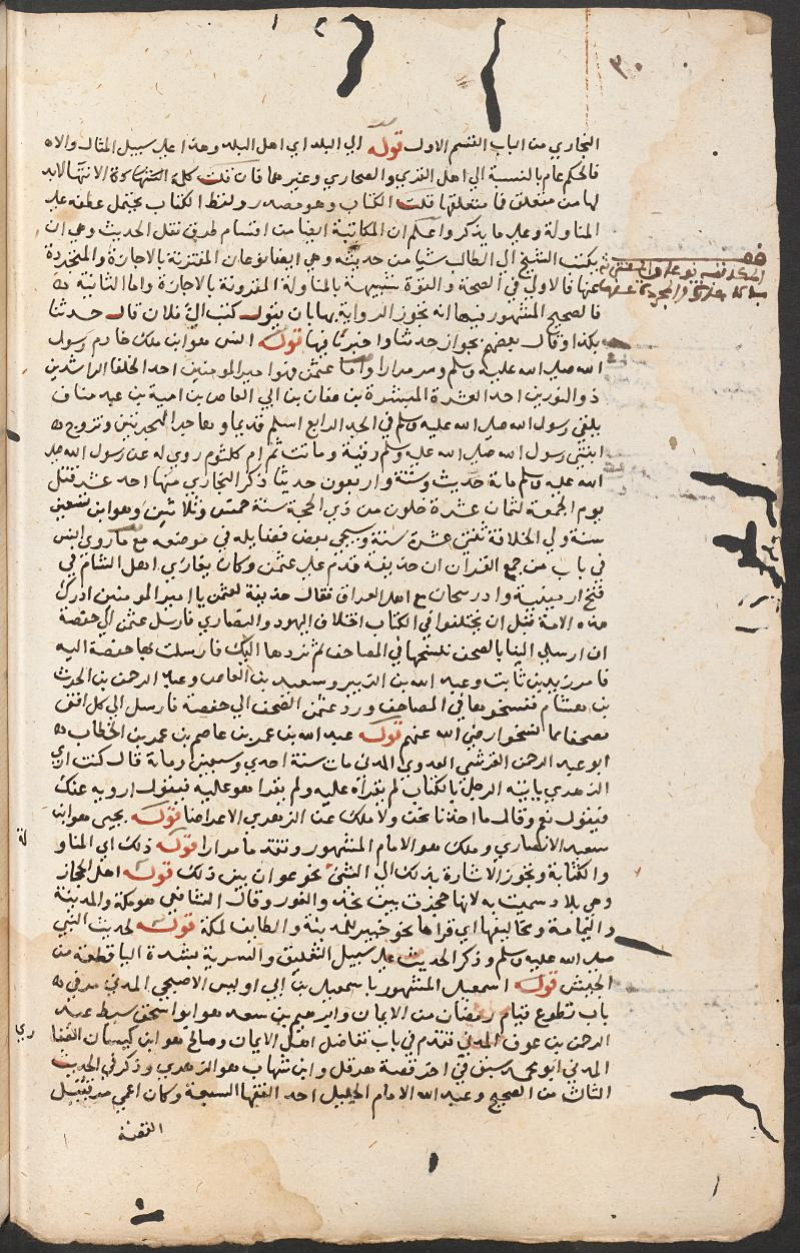 ٣٠
البخاري من الباب القسم الاول قوله الي البلد اي اهل البلد وهذا علي سبيل المثال والا
فالحكم عام بالنسبة الي اهل القري والصحاري وغيرهما فان قلت كلمة الانتها لابد
لها من متعلق فما متعلقها قلت الكتاب وهو مصدر ولفظ الكتاب يحتمل عطفه علي
المناولة وعلي ما يذكر واعلم ان المكاتبة ايضا من اقسام طرق نقل الحديث وهي ان
يكتب الشيخ الي الطالب شيا من حديثه وهي ايضا نوعان المقترنة بالاجازة والمتجردة
عنها فالاولي في الصحة والقوة شبيهة بالمناولة المقرونة بالاجازة واما الثانية
فالصحيح المشهور فيها انه تجوز الرواية بها بان يقول كتب الي فلان قال حدثنا
بكذا وقال بعضهم بجواز حدثنا واخبرنا فيها قوله انس هو ابن ملك خادم رسول
الله صلي الله عليه وسلم ومر مرارا واما عثمن فهو امير المومنين احد الخلفا الراشدين
ذو النورين احد العشرة المبشرة بن عفان بن ابي العاص بن امية بن عبد مناف
يلقي رسول الله صلي الله عليه وسلم في الجد الرابع اسلم قديما وهاجر الهجرتين وتزوج
ابنتي رسول الله صلي الله عليه وسلم رقية وماتت ثم ام كلثوم روي له عن رسول الله صلي
الله عليه وسلم ماية حديث وستة واربعون حديثا ذكر البخاري منها احد عشر قتل
يوم الجمعة لثمان عشرة خلون من ذي الحجة سنة خمس وثلاثين وهو ابن تسعين
سنة ولي الخلافة ثنتي عشرة سنة وسيجي بعض فضايله في موضعه مع ما روي انس
في باب من جمع القران ان حذيفة قدم علي عثمن وكان يغازي اهل الشام في
فتح ارمينية واذربيجان مع اهل العراق فقال حذيفة لعثمن يا امير المومنين ادرك
هذه الامة قبل ان يختلفوا في الكتاب اختلاف اليهود والنصاري فارسل عثمن الي حفصة
ان ارسلي الينا بالصحف ننسخها في المصاحف ثم نردها اليك فارسلت بها حفصة اليه
فامر زيد بن ثابت وعبد الله بن الزبير وسعيد بن العاص وعبد الرحمن بن الحرث
بن هشام فنسخوها في المصاحف ورد عثمن الصحف الي حفصة فارسل الي كل افق
مصحفا مما نسخوا رضي الله عنهم قوله عبد الله بن عمر بن عاصم بن عمر بن الخطاب
ابو عبد الرحمن القرشي العدوي المدني مات سنة احدي وسبعين وماية قال كنت اري
الزهدي ياتيه الرجل بالكتاب لم يقرأه عليه ولم يقرا هو عليه فيقول ارويه عنك
فيقول نعم وقال ما اخذنا نحن ولا ملك عن الزهدي الا عرضا قوله يحيي هو ابن
سعيد الانصاري وملك هو الامام المشهور وتقدما مرارا قوله ذلك اي المناو
لة
والكتابة وتجوز الاشارة بذلك الي المثني نحو عوان بين ذلك قوله اهل الحجاز
وهي بلاد سميت به لانها حجزت بين نجد والغور وقال الشافعي هو مكة والمدينة
واليمامة ومخاليفها اي قراها نحو خيبر للمدينة والطايف لمكة قوله لحديث النبي
صلي الله عليه وسلم وذكر الحديث علي سبيل التعليق والسرية بشدة اليا قطعة من
الجيش قوله اسمعيل المشهور باسمعيل بن ابي اويس الاصبحي المدني مر في
باب تطوع قيام رمضان من الايمان وابرهيم بن سعد هو ابو اسحق سبط عبد
الرحمن بن عوف المدني تقدم في باب تفاضل اهل الايمان وصالح هو ابن كيسان الغفا
ري
المدني ابو محمد سبق في اخر قصة هرقل وابن شهاب هو الزهدي وذكر في الحديث
الثالث من الصحيح وعبيد الله الامام الجليل احد الفقها السبعة وكان اعمي مر قبيل
القصة